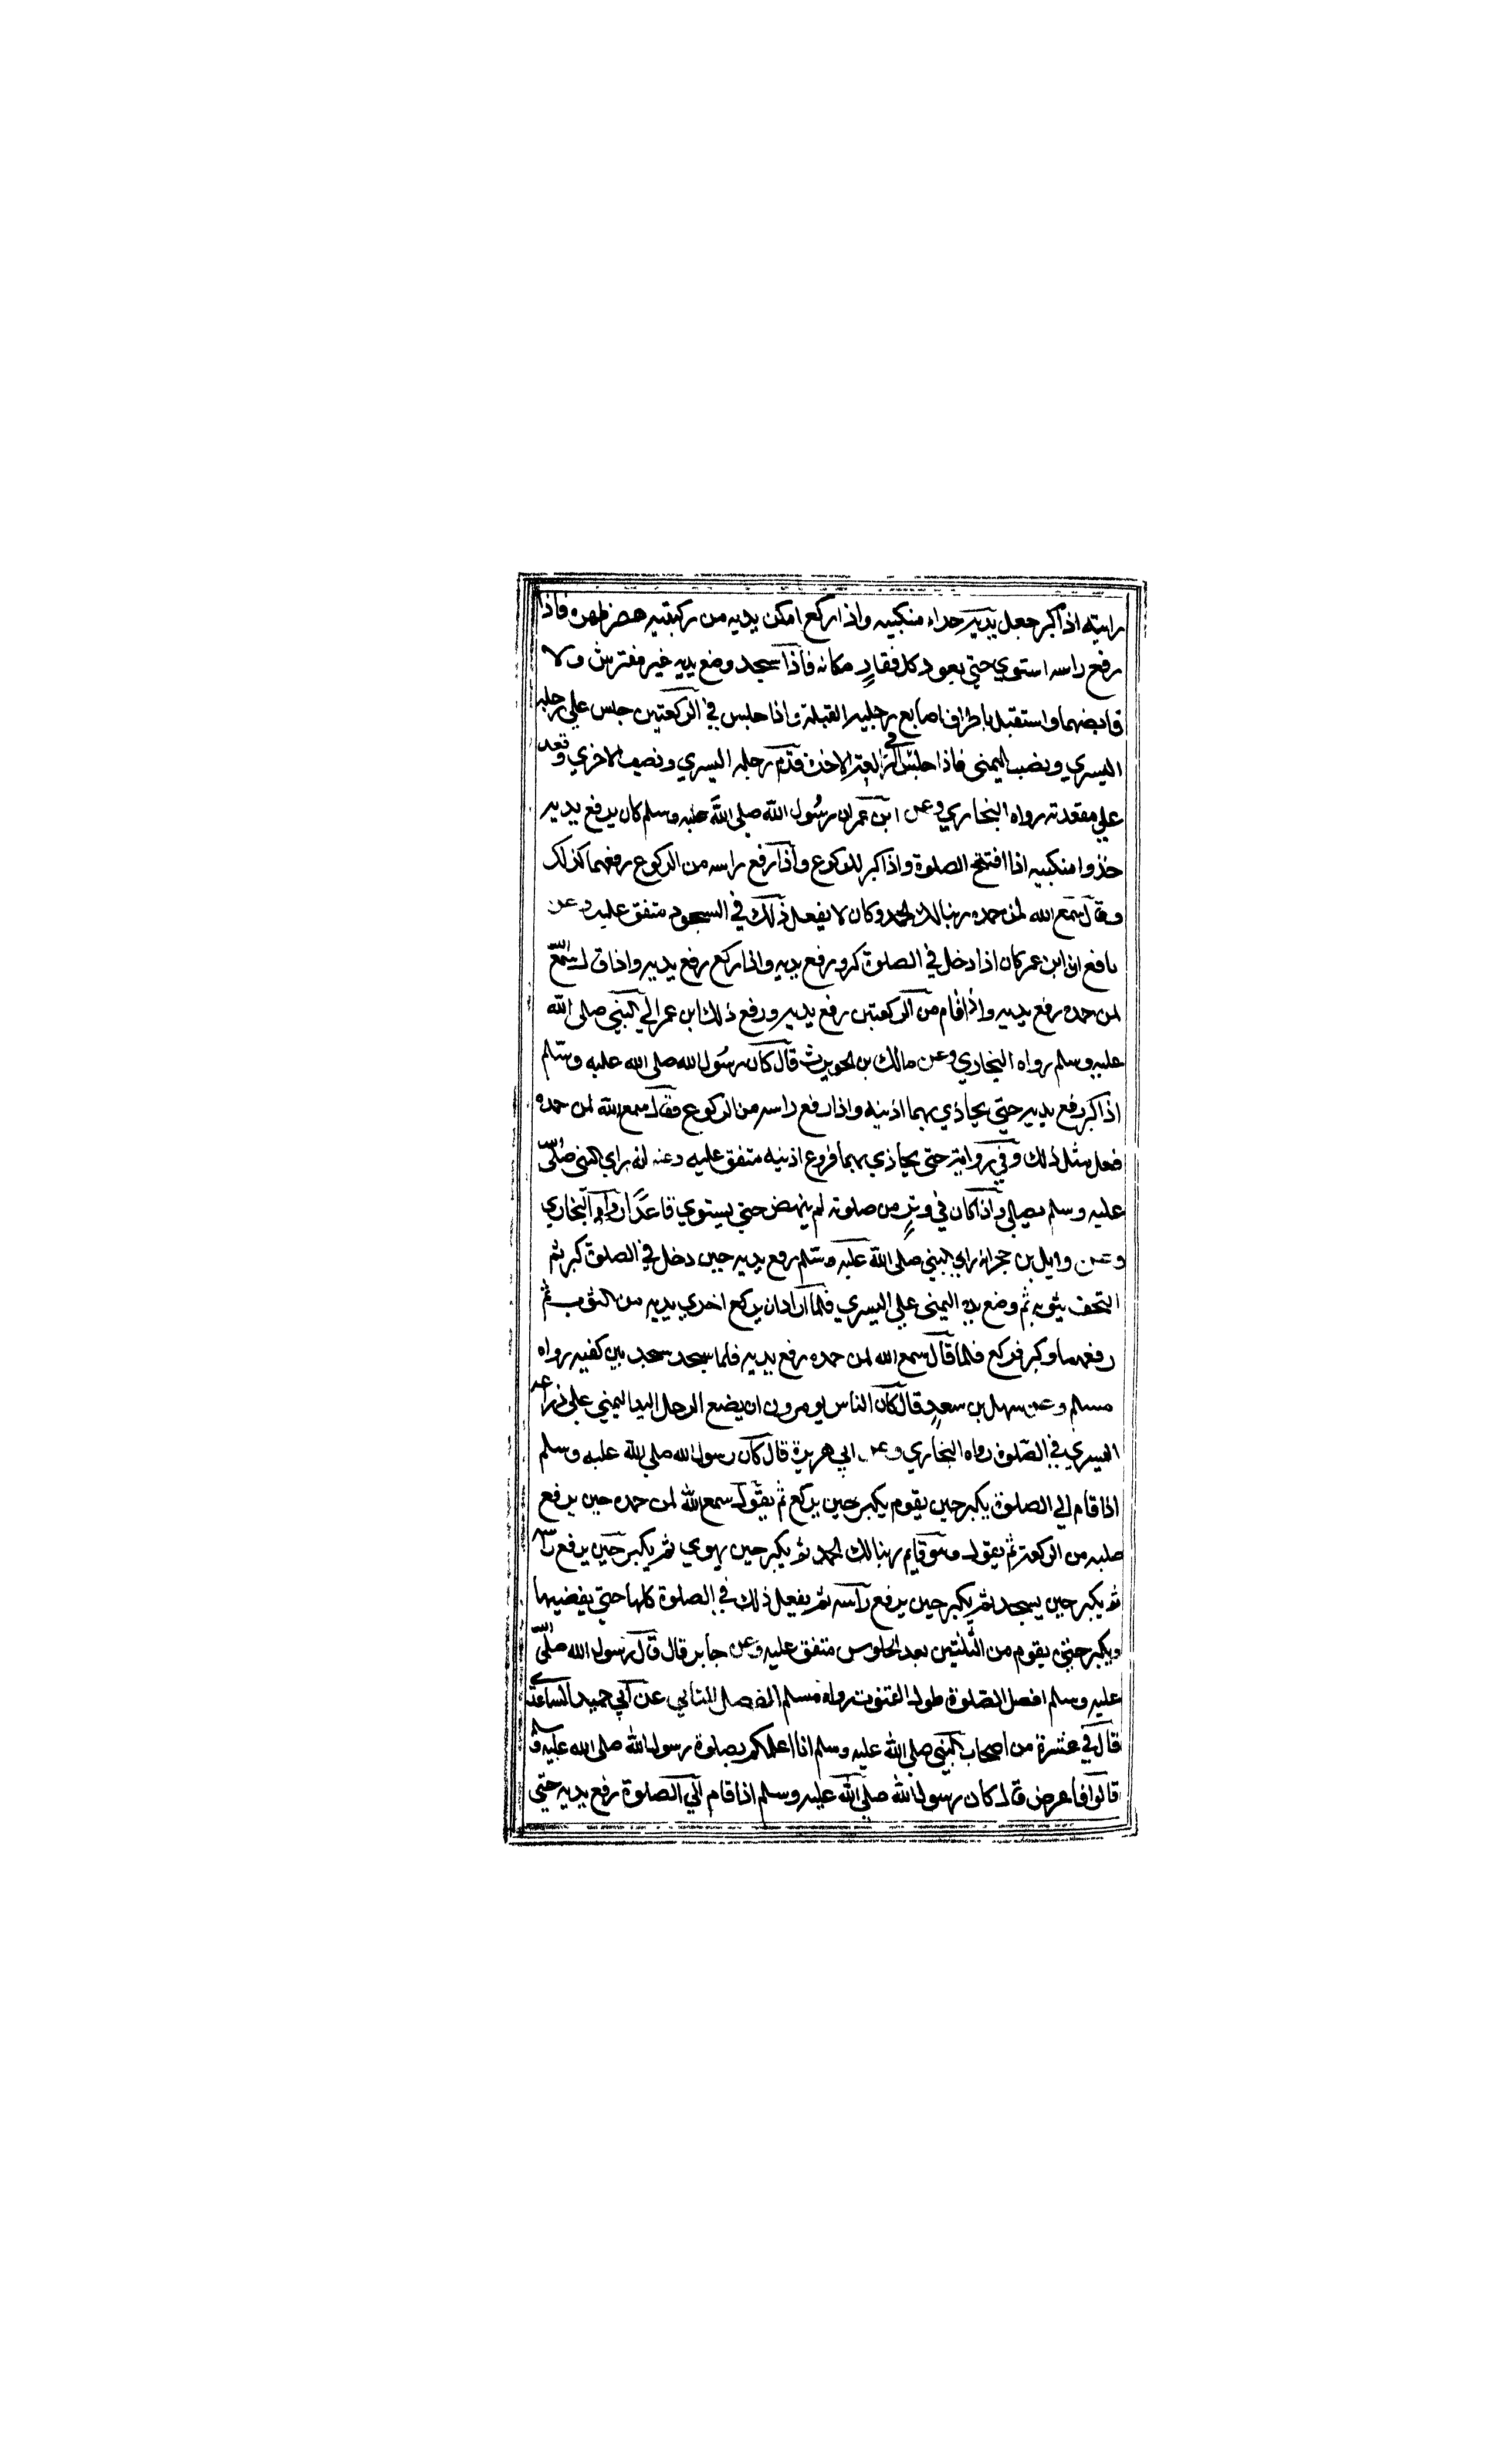 رايته اذا كبر جعل يديه حذاء منكبيه واذا ركع امكن يديه من ركبتيه هصر ظهره فاذا
رفع راسه استوي حتي يعود كل فقار مكانه فاذا سجد وضع يديه غير مفترش ولا
قابضهما واستقبل باطراف اصابع رجليه القبلة واذا جلس في الركعتين جلس علي رجله
اليسري ونصب اليمني فاذا جلس في الركعة الاخرة قدم رجله اليسري ونصب الاخري وقعد
علي مقعدته رواه البخاري وعن ابن عمر ان رسول الله صلي الله عليه وسلم كان يرفع يديه
حذو منكبيه اذا افتتح الصلوة واذا كبر للركوع واذا رفع راسه من الركوع رفعهما كذلك
وقال سمع الله لمن حمده ربنا لك الحمد وكان لا يفعل ذلك في السجود متفق عليه وعن
نافع ان ابن عمر كان اذا دخل في الصلوة كبر ورفع يديه واذا ركع رفع يديه واذا قال سمع الله
لمن حمده رفع يديه واذا قام من الركعتين رفع يديه ورفع ذلك ابن عمر الي النبي صلي الله
عليه وسلم رواه البخاري وعن مالك بن الحويرث قال كان رسول الله صلي الله عليه وسلم
اذا كبر رفع يديه حتي يحاذي بهما اذنيه واذا رفع راسه من الركوع فقال سمع الله لمن حمده
فعل مثل ذلك وفي رواية حتي يحاذي بهما فروع اذنيه متفق عليه وعنه انه راي النبي صلي الله
عليه وسلم يصلي واذا كان في وتر من صلوته لم ينهض حتي يستوي قاعدا رواه البخاري
وعن وايل بن حجر انه راي النبي صلي الله عليه وسلم رفع يديه حين دخل في الصلوة كبر ثم
التحف بثوبه ثم وضع يده اليمني علي اليسري فلما اراد ان يركع اخرج يديه من الثوب ثم
رفعهما وكبر فركع فلما قال سمع الله لمن حمده رفع يديه فلما سجد سجد بين كفيه رواه
مسلم وعن سهل بن سعد قال كان الناس يومرون ان يضع الرجل اليد اليمني علي ذراعه
اليسري في الصلوة رواه البخاري وعن ابي هريرة قال كان رسول الله صلي الله عليه وسلم
اذا قام الي الصلوة يكبر حين يقوم يكبر حين يركع ثم يقول سمع الله لمن حمده حين يرفع
صلبه من الركعة ثم يقول وهو قايم ربنا لك الحمد ثم يكبر حين يهوي ثم يكبر حين يرفع راسه
ثم يكبر حين يسجد ثم يكبر حين يرفع راسه ثم يفعل ذلك في الصلوة كلها حتي يقضيها
ويكبر حين يقوم من الثلثتين بعد الجلوس متفق عليه وعن جابر قال قال رسول الله صلي الله
عليه وسلم افضل الصلوة طول القنوت رواه مسلم الفصل الثاني عن ابي حميد الساعدي
قال في عشرة من اصحاب النبي صلي الله عليه وسلم انا اعلمكم بصلوة رسول الله صلي الله عليه وسلم
قالوا فاعرض قال كان رسول الله صلي الله عليه وسلم اذا قام الي الصلوة رفع يديه حتي